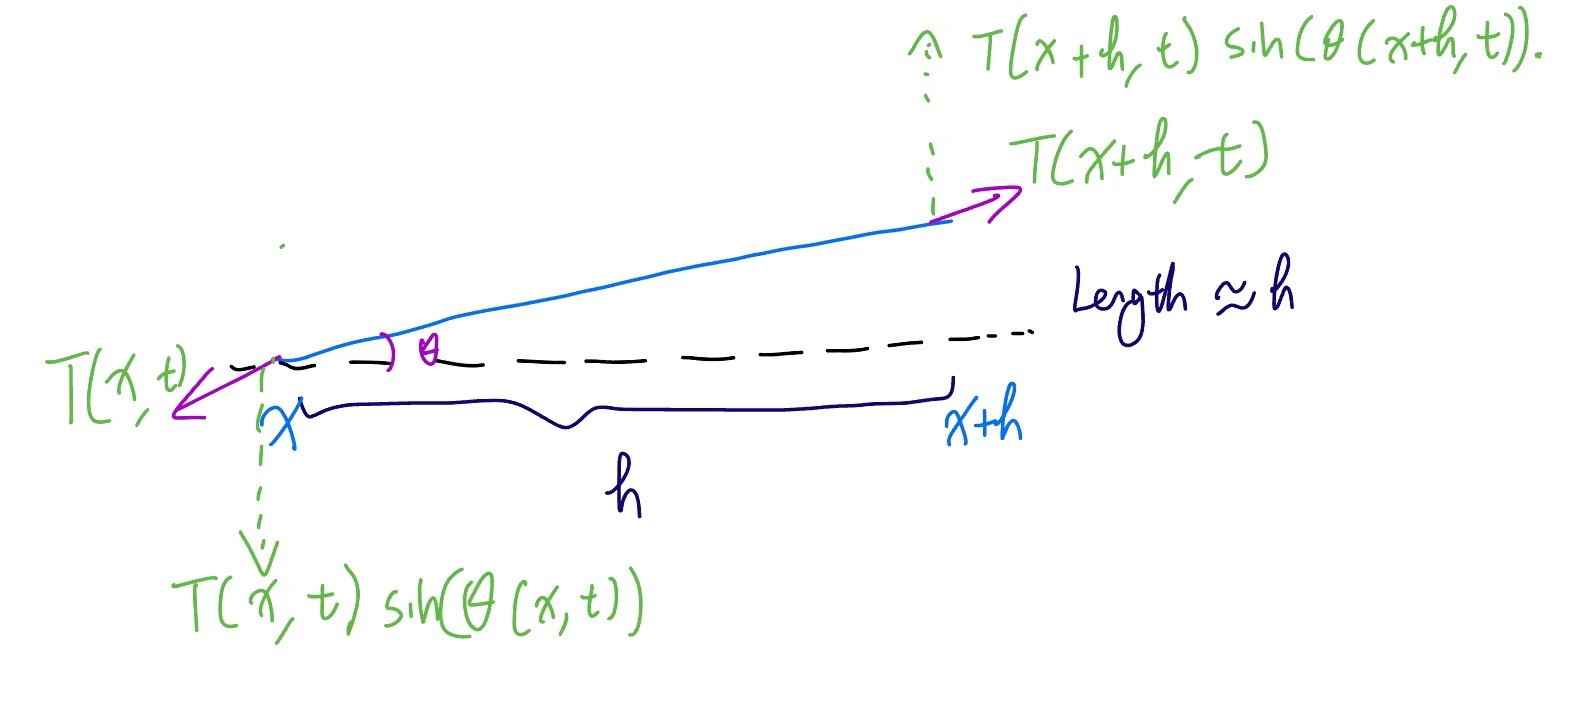 T(x+h,t) sin(θ(x+h,t)).
T(x+h,t)
Length ≈ h
T(x,t)
θ
x
x+h
h
T(x,t) sin(θ(x,t))